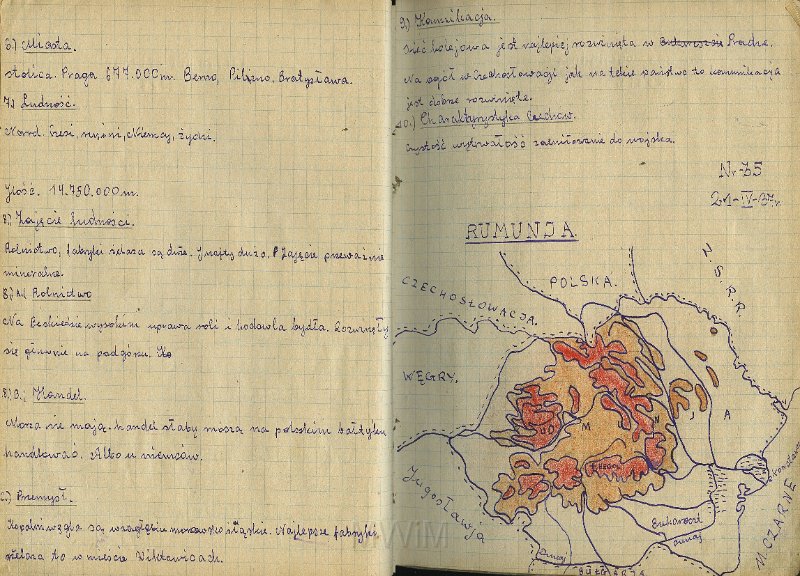 6.) Miasta.
stolica. Praga 677.000m. Berno, Pilzno, Bratysława.
7.) Ludność.
Narod. Czesi, Niemcy, Żydzi.
Ilość. 14.750.000m.
8.) Zajęcie ludności.
Rolnictwo, fabryki żelaza są duże. I nafty dużo. Zajęcie przeważnie
mineralne.
8.) A) Rolnictwo
Na Beskidzie wysokim uprawa roli i hodowla bydła. Rozwinęły
się głównie na podgórzu.
B.) Handel.
Morza nie mają. handel słaby muszą na polskim bałtyku
handlować. Albo u niemców.
C.) Przemysł.
Kopalnie węgla są w zagłębiu morawsko śląskie. Najlepsze fabryki
żelaza to w mieście Witkowicach.
9.) Komunikacja.
Sieć kolejowa jest najlepiej rozwinięta w Pradze.
Na ogół w Czechosłowacji jak na takie państwo to komunikacja
jest dobrze rozwinięta.
10.) Charakterystyka Czechów.
czystość wytrwałość zamiłowanie do wojska.
Nr 35
21-IV-37r.
RUMUNJA.
CZECHOSŁOWACJA.
POLSKA.
Z.S.R.R.
WĘGRY.
R U M U N J A
Jugosławja
Bukareszt
Dunaj
Dunaj
BUŁGARJA
M. CZARNE
WIM